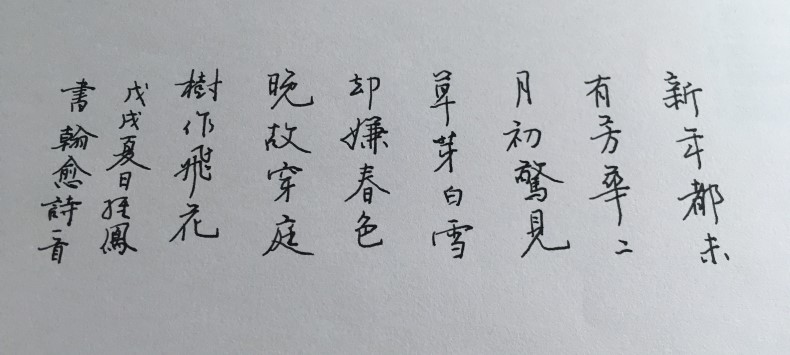 新年都未
有芳華二
月初驚見
草芽白雪
却嫌春色
晚故穿庭
樹作飛花
戊戌夏日鳳
書翰愈詩一首